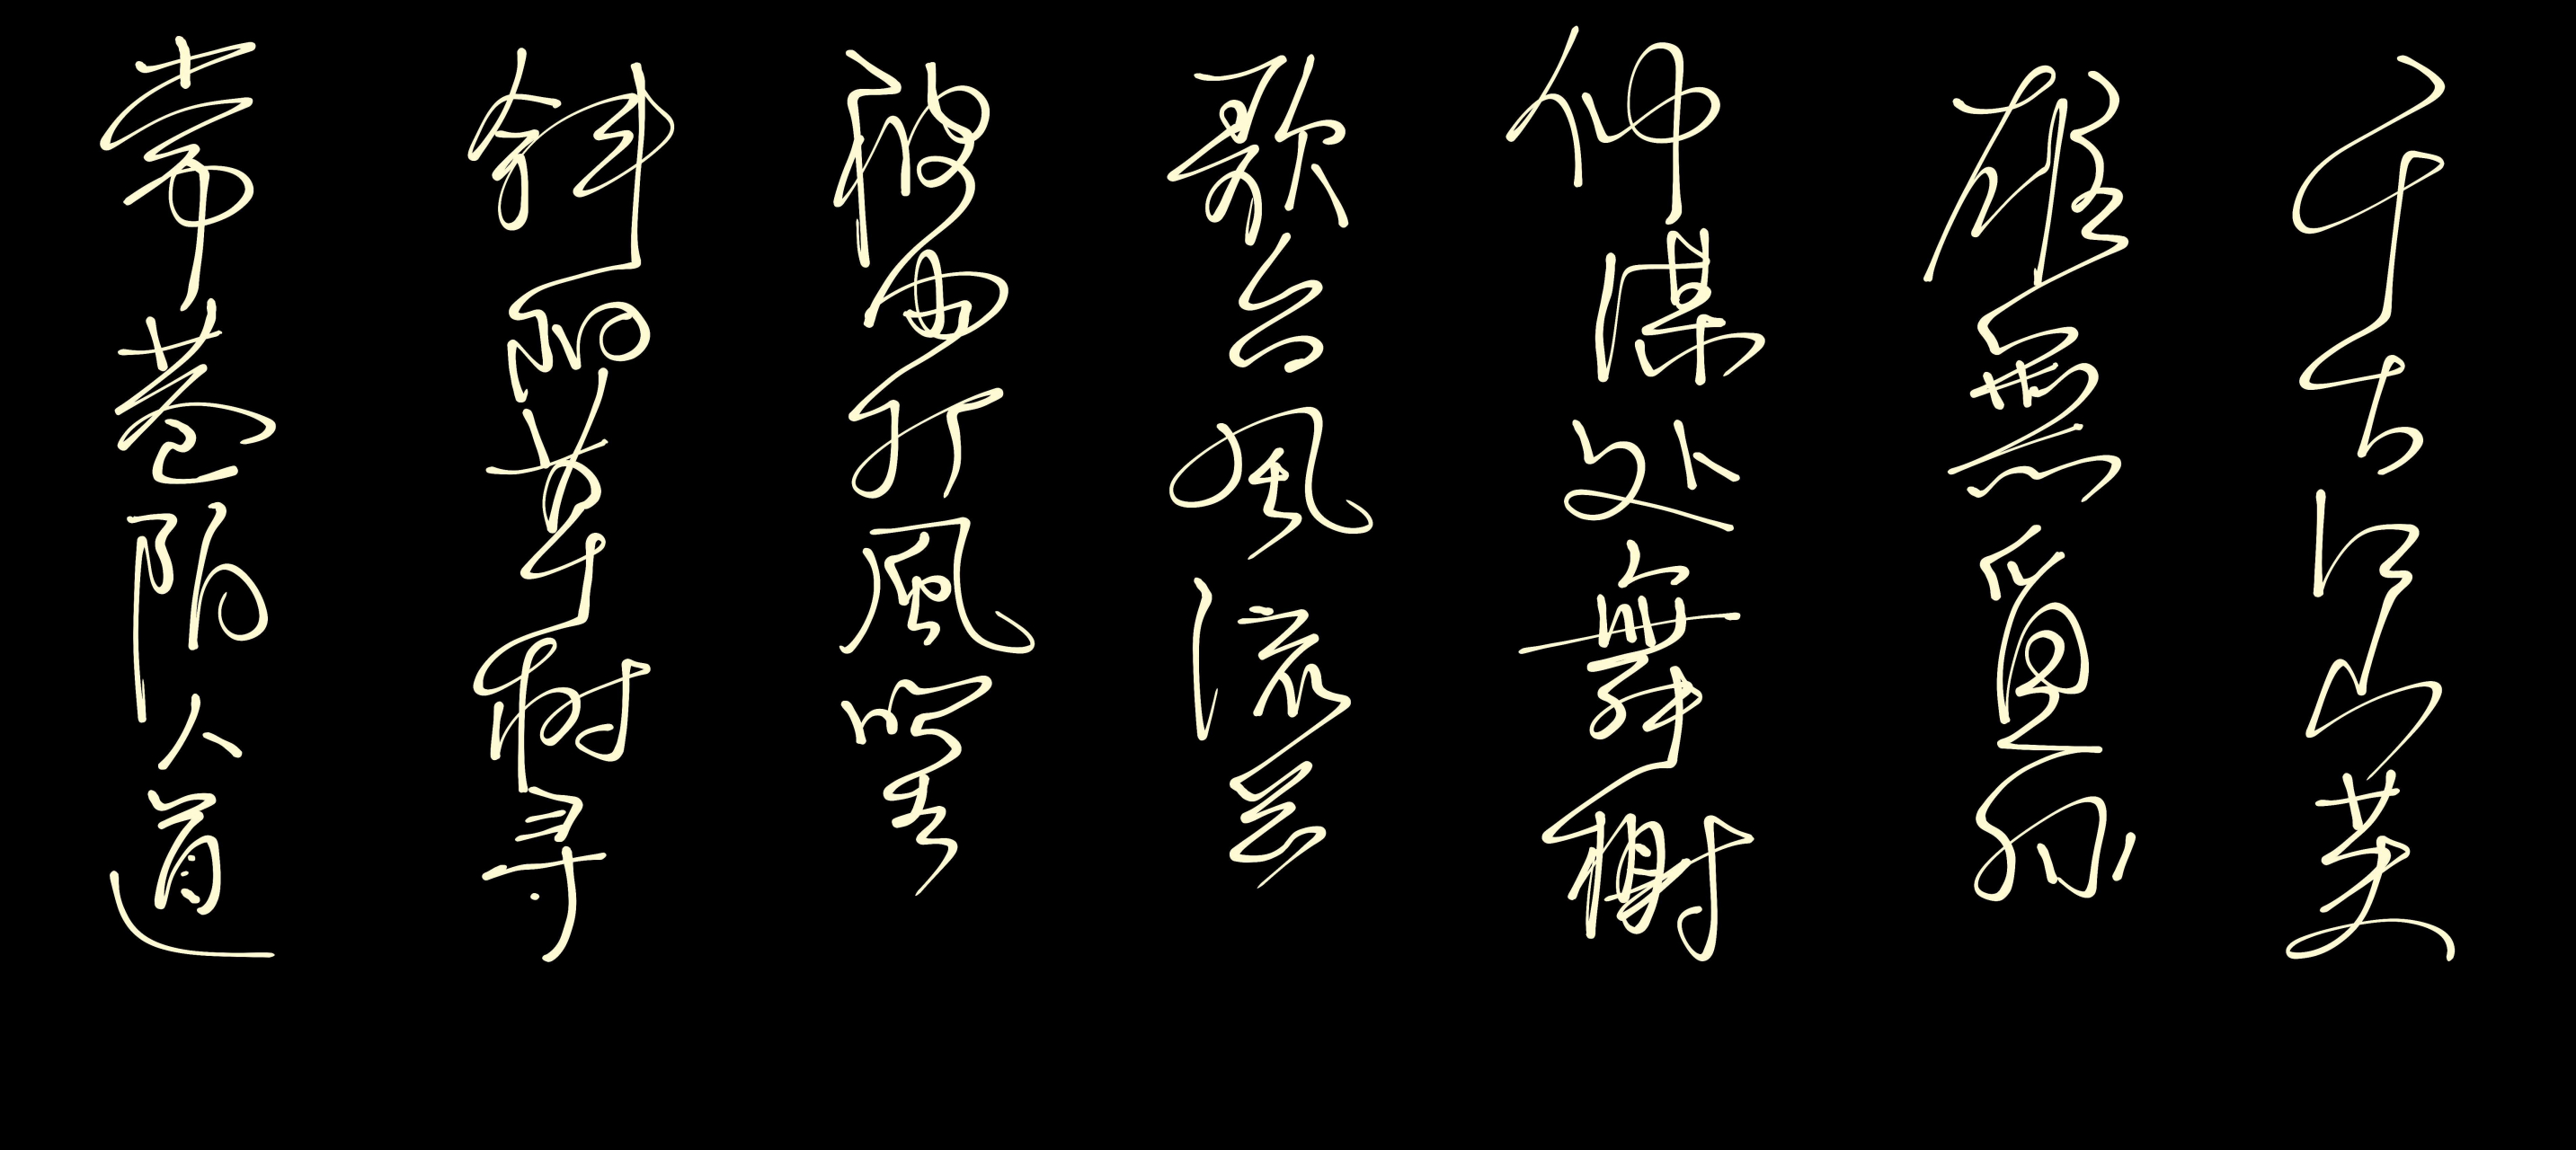 千古江山英
雄無覓孙
仲谋处舞榭
歌台風流总
被雨打風吹去
斜阳草树寻
常巷陌人道